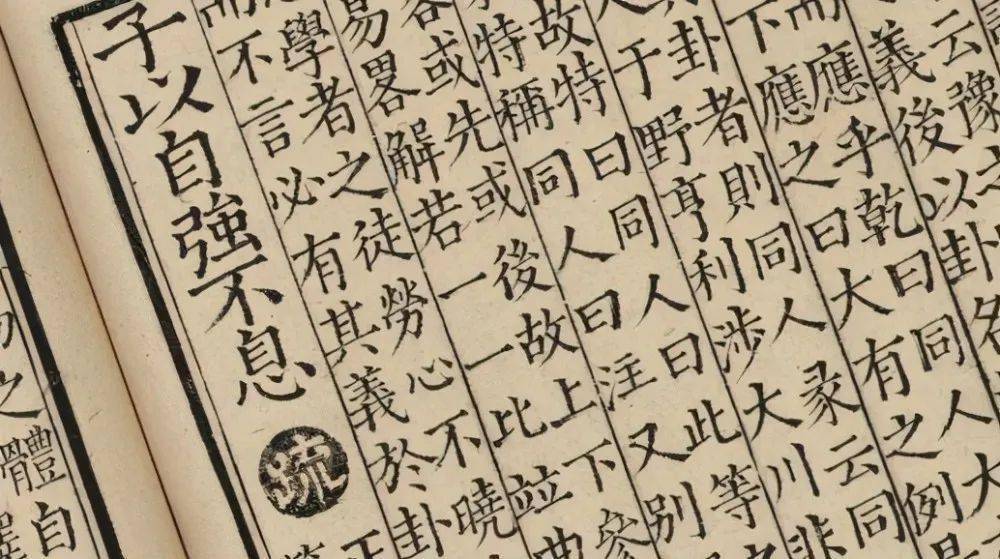 云豫之
義後以卦名
而應乎乾曰同人大
下應之曰大有之例
卦者則同人彖云同
于野亨利涉大川非
故特曰同人曰此等
特稱同人曰注又別
或先或後故上下參
易畧解若一一比並曲
學者之徒勞心不曉
而不言必有其義於卦
子以自強不息疏
體自
之